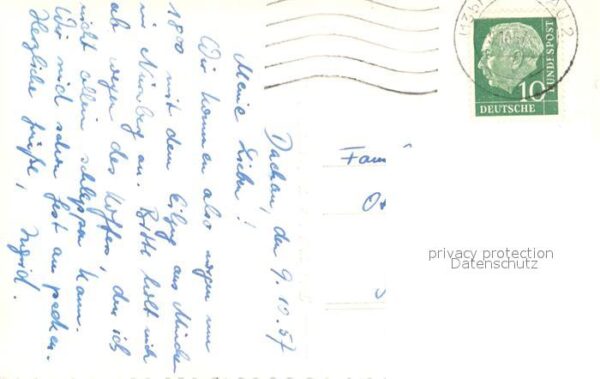 Dachau, den 9.10.57
Meine Lieben!
Wir kommen also morgen um
1800 mit dem Eilzug aus München
in Nürnberg an. Bitte holt mich
ab wegen des Koffers, den ich
nicht allein schleppen kann.
Wir sind schon fest am packen.
Herzliche Grüße, Ingrid.
Fam
10
DEUTSCHE
BUNDESPOST
privacy protection
Datenschutz